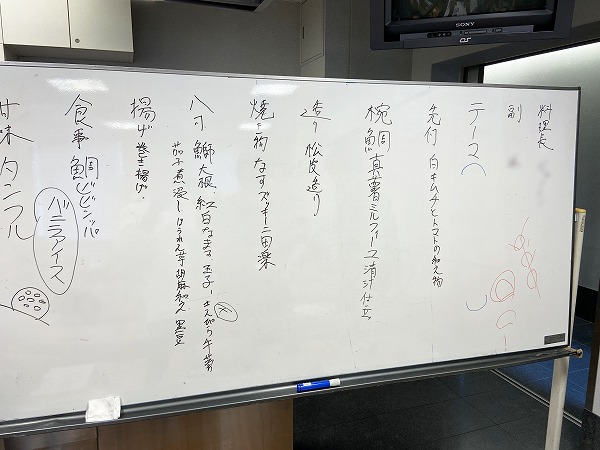 料理長
副
テーマ(
先付 白キムチとトマトの和え物
椀 鯛真薯ミルフィーユ清汁仕立
造り 松皮造り
焼き物 なすズッキーニ田楽
八寸 鰤大根 紅白なます 玉子
きんぴら牛蒡
茄子煮浸し ほうれん草胡麻和え 黒豆
揚げ 巻き揚げ
食事 鯛ビビンバ
バニラアイス
甘味 タンフル
SONY